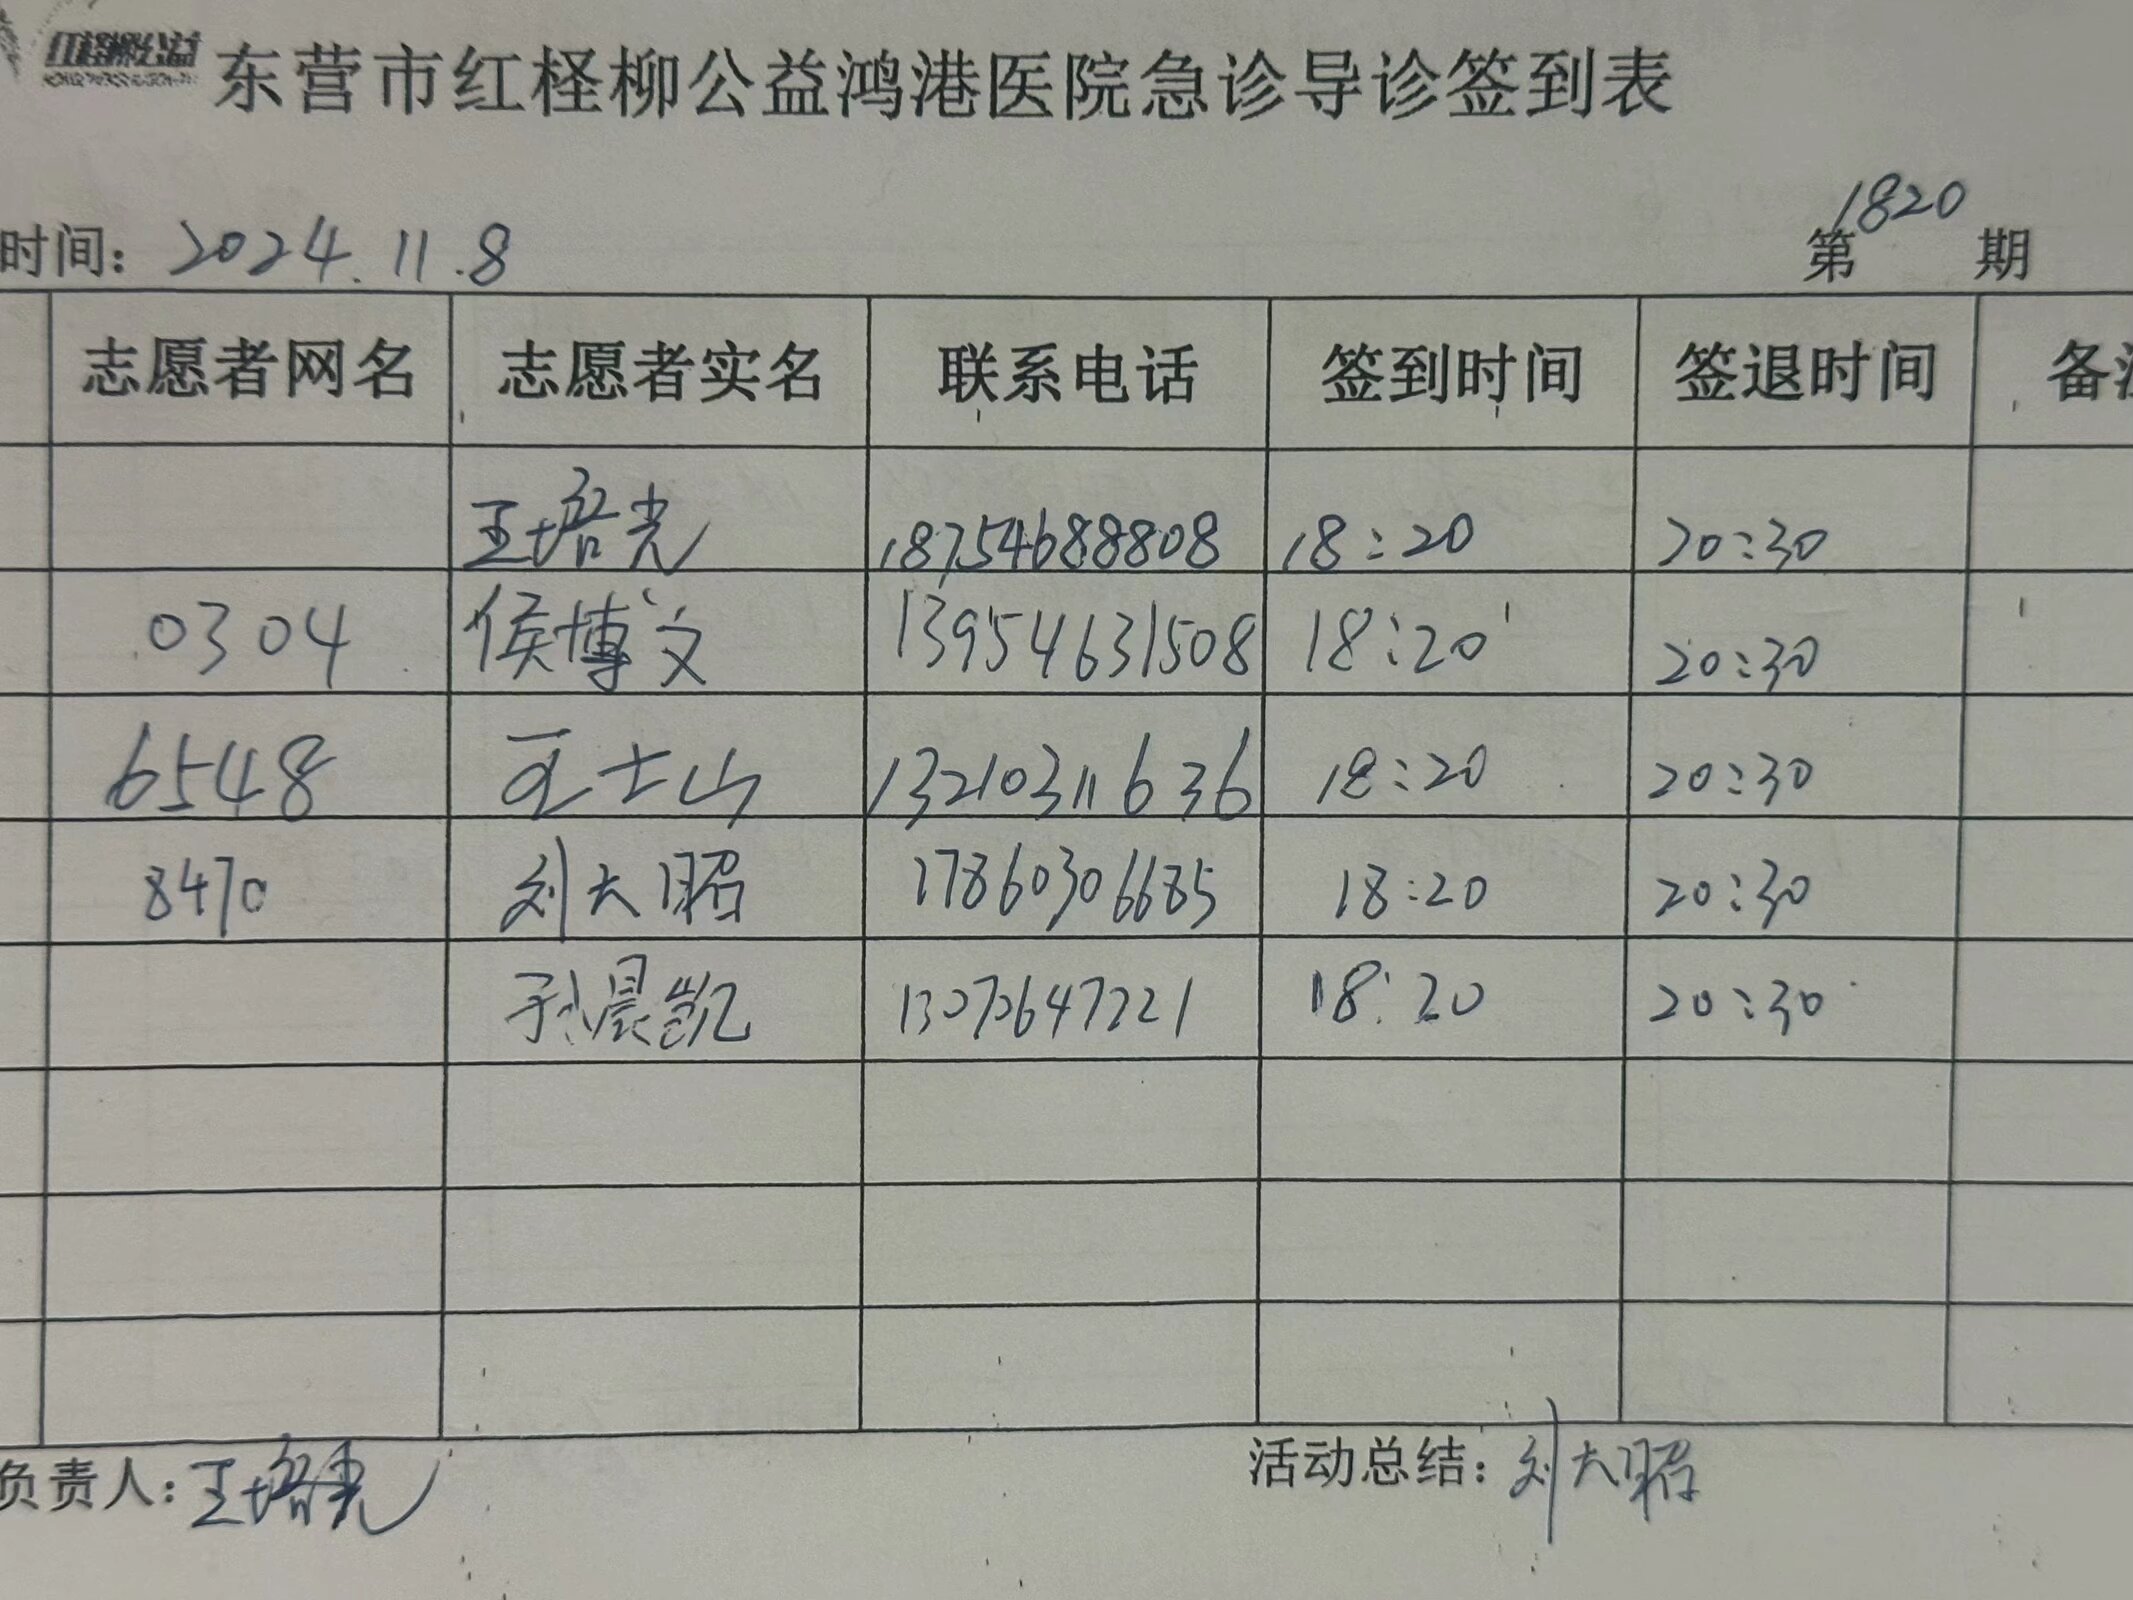 红柽柳公益
东营市红柽柳公益鸿港医院急诊导诊签到表
时间：2024.11.8 第1820期
志愿者网名 志愿者实名 联系电话 签到时间 签退时间 备注
王培光 18754688808 18:20 20:30
0304 侯博文 13954631508 18:20 20:30
6548 王士山 13210311636 18:20 20:30
8470 刘大昭 17860306685 18:20 20:30
孙晨凯 13070647221 18:20 20:30
负责人：王培光 活动总结：刘大昭